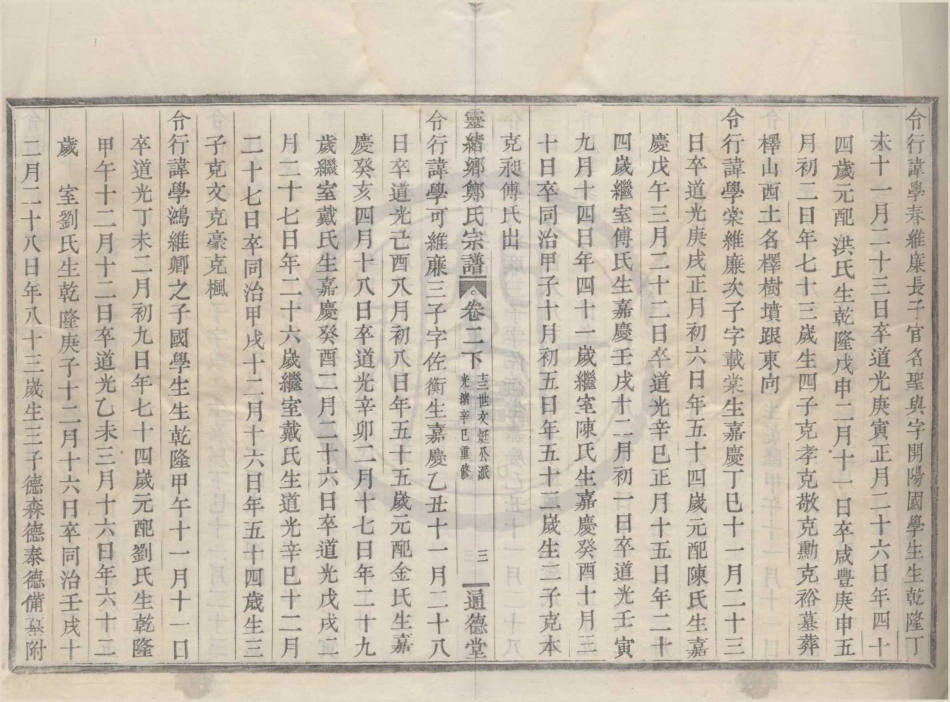 令行諱學春維廉長子官名聖與字開陽國學生生乾隆丁
未十一月二十三日卒道光庚寅正月二十六日年四十
四歲元配洪氏生乾隆戊申二月十一日卒咸豐庚申五
月初二日年七十三歲生四子克孝克敬克勳克裕墓葬
樟山西土名樟樹墳跟東向
令行諱學棠維廉次子字載棠生嘉慶丁巳十一月二十三
日卒道光庚戌正月初六日年五十四歲元配陳氏生嘉
慶戊午三月二十二日卒道光辛巳正月十五日年二十
四歲繼室傅氏生嘉慶壬戌十二月初一日卒道光壬寅
九月十四日年四十一歲繼室陳氏生嘉慶癸酉十月三
十日卒同治甲子十月初五日年五十二歲生二子克本
克昶傅氏出
靈緒鄉鄭氏宗譜 卷二下 十三世文珽公派 光緒辛巳重修 三 通德堂
令行諱學可維廉三子字佐衡生嘉慶乙丑十一月二十八
日卒道光己酉八月初八日年五十五歲元配金氏生嘉
慶癸亥四月十八日卒道光辛卯二月十七日年二十九
歲繼室戴氏生嘉慶癸酉二月二十六日卒道光戊戌二
月二十七日年二十六歲繼室戴氏生道光辛巳十二月
二十七日卒同治甲戌十二月十六日年五十四歲生三
子克文克豪克楓
令行諱學鴻維卿之子國學生生乾隆甲午十一月十一日
卒道光丁未二月初九日年七十四歲元配劉氏生乾隆
甲午十二月十二日卒道光乙未三月十六日年六十二
歲 室劉氏生乾隆庚子十二月十六日卒同治壬戌十
二月二十八日年八十三歲生三子德森德泰德備墓附